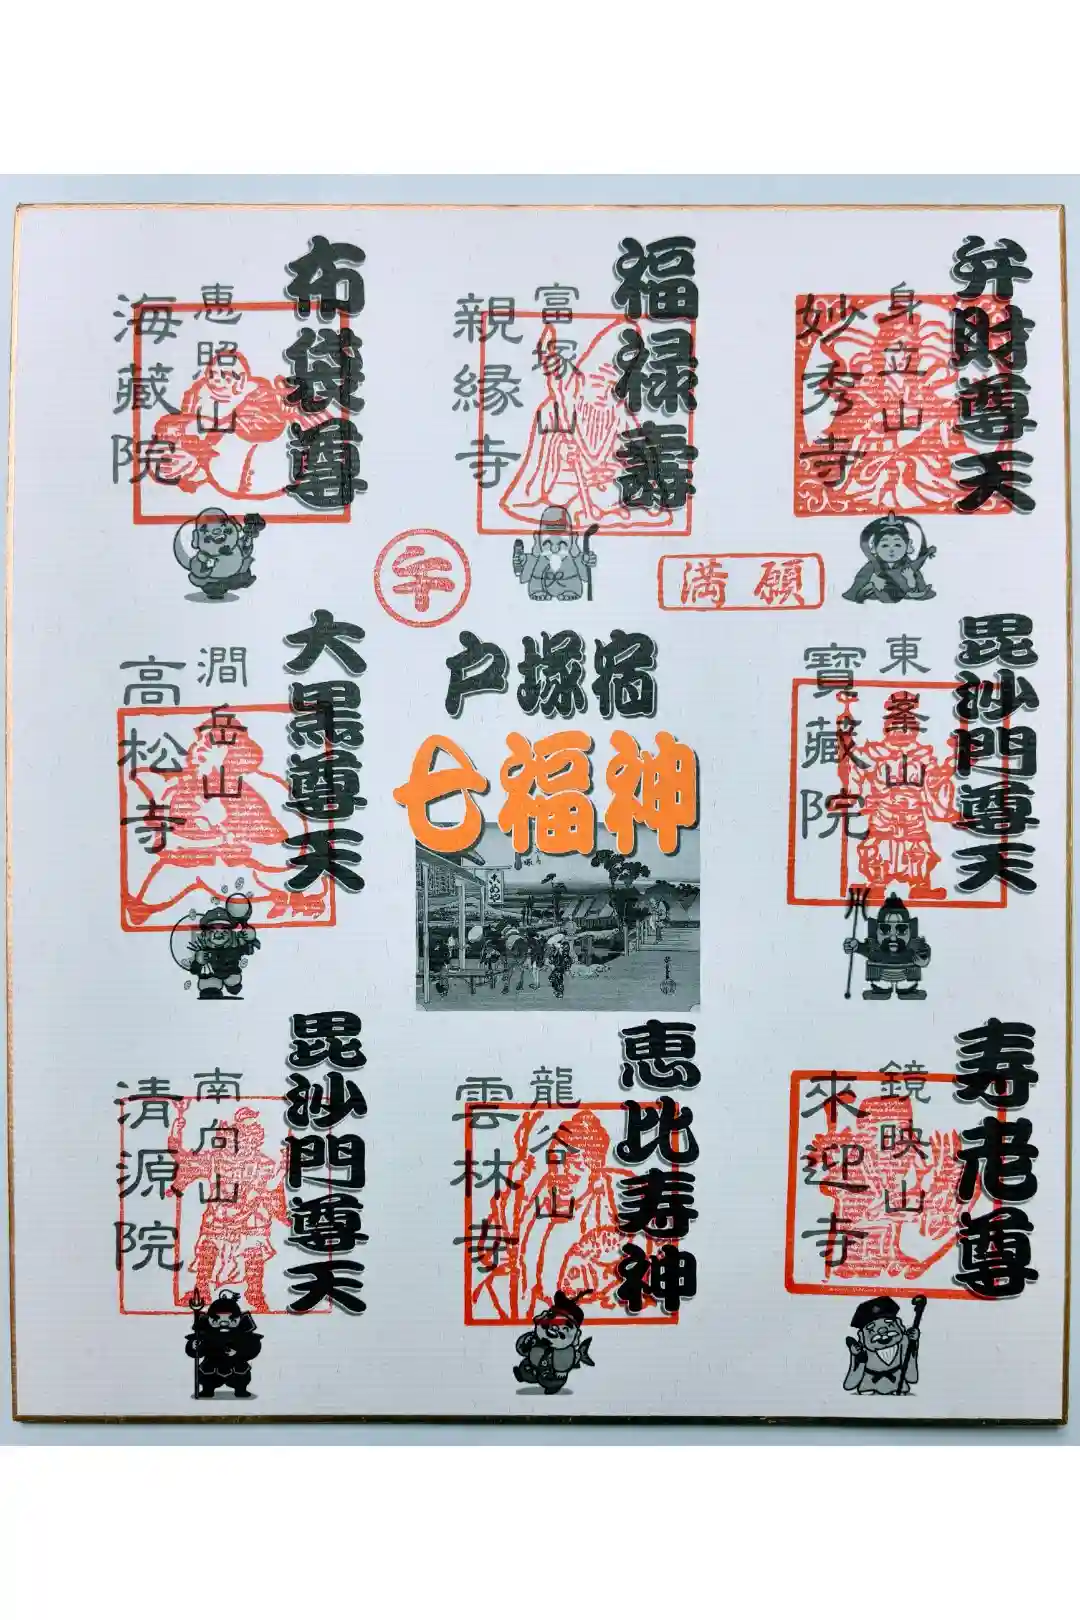 弁財尊天
身立山
妙秀寺
福禄壽
富塚山
親縁寺
布袋尊
恵照山
海藏院
満願
戸塚宿
七福神
こめや
毘沙門尊天
東峯山
寶藏院
大黒尊天
澗岳山
高松寺
寿老尊
鏡映山
来迎寺
恵比寿神
龍谷山
雲林寺
毘沙門尊天
南向山
清源院